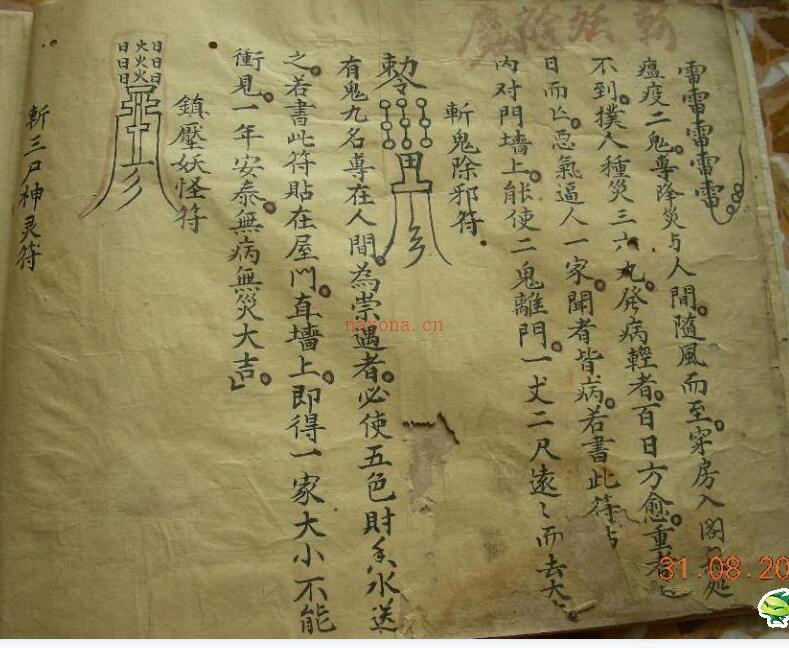 斬妖除魔
雷雷雷雷雷
瘟疫二鬼專降災与人間。隨風而至。穿房入閣處
不到。撲人種災三六九。發病輕者。百日方愈。重者
日而亡。惡氣逼人一家。聞者皆病。若書此符
内对門墻上。能使二鬼離門一丈二尺遠〻而去大
斬鬼除邪符
敕令
有鬼九名專在人間。為祟遇者。必使五色財水送
之。若書此符貼在屋門。直墻上。即得一家大小不能
衝見。一年安泰。無病無災大吉。
鎮壓妖怪符
日日日
火火火
日日日
斬三尸神灵符
nayona.cn
31.08.20